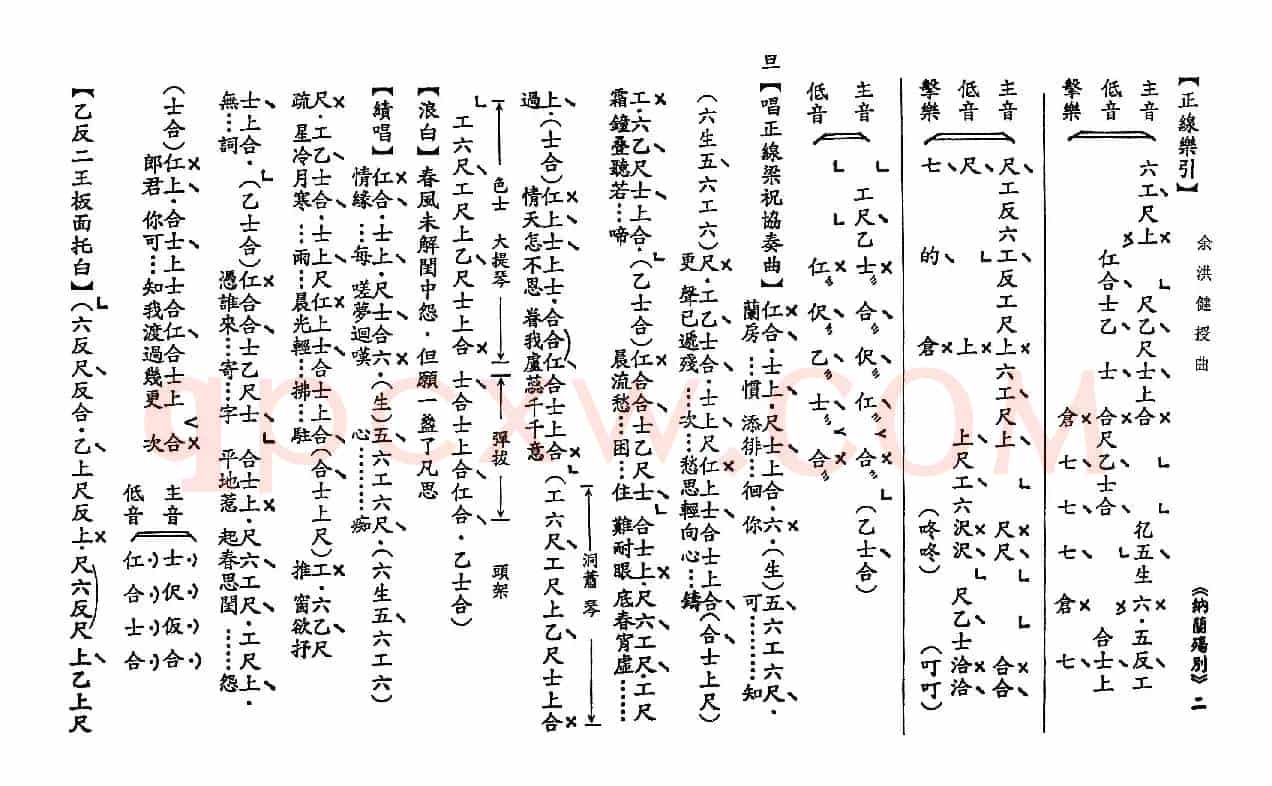 《納蘭殤別》二
余洪健授曲
【正線樂引】
主音 六工、尺上× 尺乙尺士上合× 伬五生六×.五反、工
低音 仜合士乙、士、合尺乙士合、合士、上
擊樂 倉×七、七、七、倉×七、
主音 尺、工反六工反工尺上×六工尺上、尺×尺、合×合、
低音 尺、上×上、尺工六沢×沢、尺乙士洽×洽、
擊樂 七、的、倉×(咚咚)(叮叮)
主音 工尺乙士×合伬仜合×(乙士合)
低音 仜×伬乙士合×
旦【唱正線梁祝協奏曲】仁×合.士上、.尺士上合.六×.(生)五、六工六尺、.
蘭房…慣 添徘…徊 你 可………知
(六生五、六工、六)尺×.工乙士、合.士上尺仁×上士合士上合、(合士上尺)
更 聲已遞殘…次…愁思輕向心…鑄
工×.六乙尺士上合、.(乙士合)仁×合合士乙尺士、合士上×.尺六工尺、.工尺
霜 鐘疊聽若…啼 晨流愁…困…住 難耐眼 底春宵虛……
上、.(士合)仁×上、士上士、.合合仁×合士上合、(工六尺工尺上乙尺士上合×
過 情天怎不恩 眷我盧蕊千千意
洞蕭 琴
工六尺工尺上乙尺士上合× 士合士上合仜合、.乙士合)
色士 大提琴 彈拔 頭架
【浪白】春風未解閨中怨.但願一盞了凡思
【續唱】仁×合.士上、.尺士合六×.(生)五、六工六尺、.(六生五、六工、六)
情緣…每 嗟夢迴嘆 心………痴
尺×.工乙士、合.士上尺仁×上士合士上合、(合士上尺)工×.六乙尺
疏 星冷月寒…雨…晨光輕…拂…駐 推 窗欲抒
士、上合.(乙士合)仁×合合士乙尺士、合士上×.尺六工尺、.工尺上、.
無…詞 憑誰來…寄…字 平地惹 起春思閨……怨
(士合)仁×上、.合士、上士合仁合士上 合×
郎君 你可…知我渡過幾更 次
主音 士伬仮合
低音 仜合士合
【乙反二王板面托白】(六反尺反合.乙、上尺反上×.尺六反尺 上、乙上尺